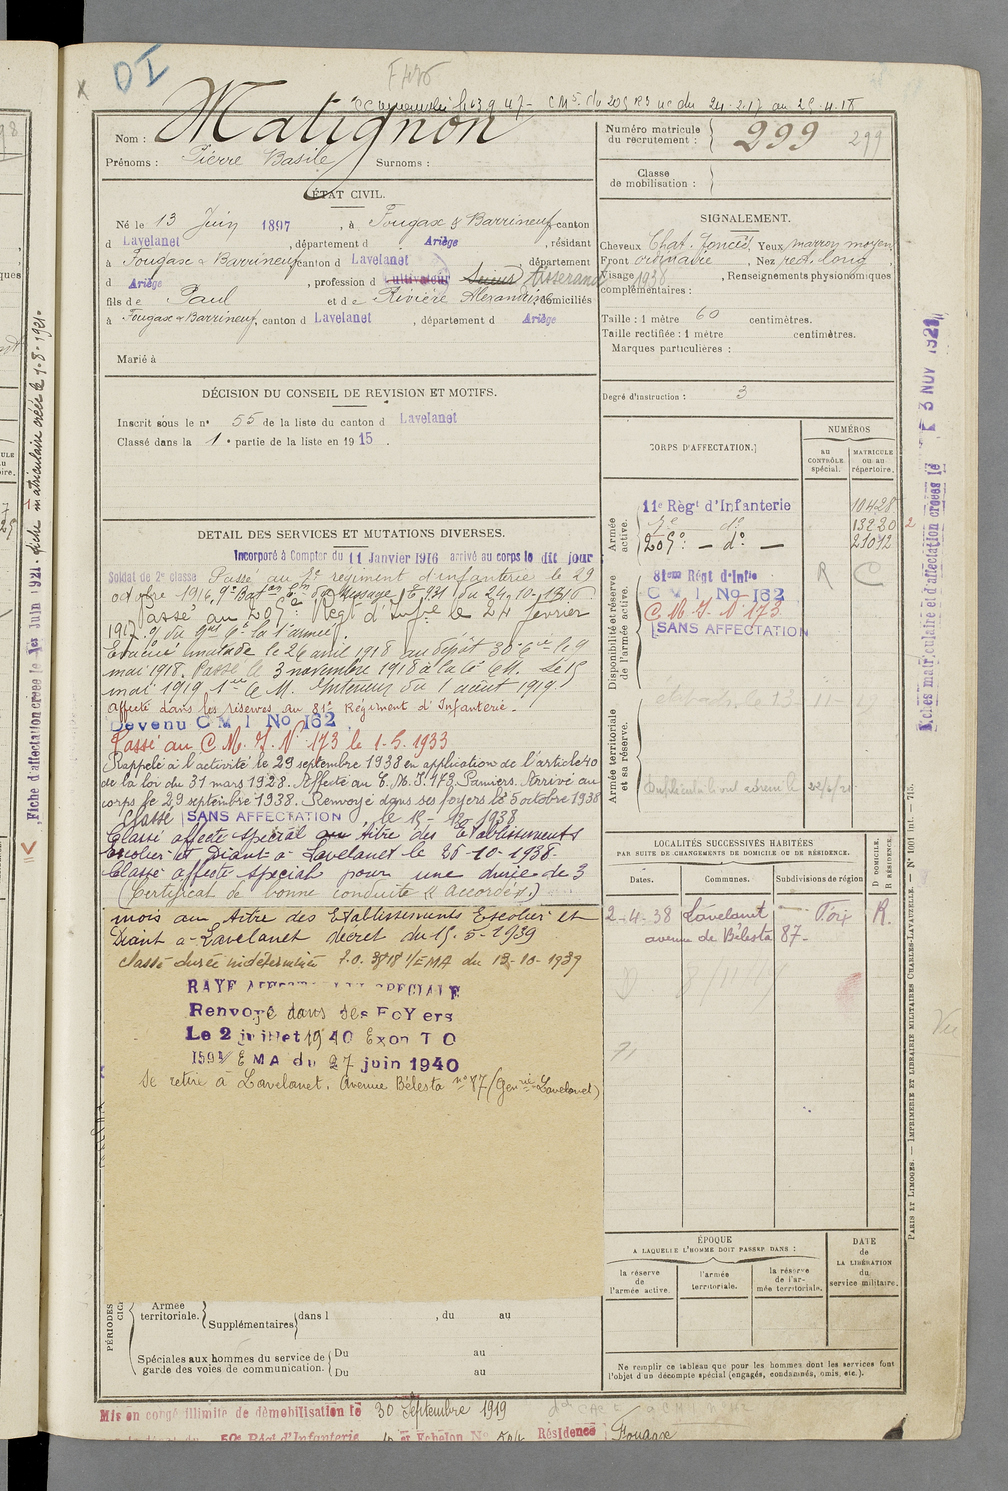 DI
F 426
CM5. du 209 R3 uc du 24-2-17 au 25-4-18
Nom : Matignon
Prénoms : Pierre Basile Surnoms :
Numéro matricule du recrutement : 299 299
Classe de mobilisation :
ÉTAT CIVIL.
Né le 13 Juin 1897, à Fougax & Barrineuf, canton
d Lavelanet, département d Ariège, résidant
à Fougax & Barrineuf canton d Lavelanet, département
d Ariège, profession d cultivateur Tisserand
fils de Paul et de Rivière Alexandrine domiciliés
à Fougax & Barrineuf, canton d Lavelanet, département d Ariège
Marié à
SIGNALEMENT.
Cheveux Chat. foncés, Yeux marron moyen
Front ordinaire, Nez rect. long
Visage, Renseignements physionomiques
complémentaires :
Taille : 1 mètre 60 centimètres.
Taille rectifiée : 1 mètre centimètres.
Marques particulières :
Degré d'instruction : 3
DÉCISION DU CONSEIL DE REVISION ET MOTIFS.
Inscrit sous le n° 55 de la liste du canton d Lavelanet
Classé dans la 1e partie de la liste en 1915.
CORPS D'AFFECTATION.
NUMÉROS
AU CONTRÔLE spécial.
MATRICULE ou au répertoire.
Armée active.
11e Régt d'Infanterie 10428
7e d° 13220
209e — d° — 21012
Disponibilité et réserve de l'armée active.
81ème Régt d'Infie R C
C M I No 162
C M I N° 173
SANS AFFECTATION
Armée territoriale et sa réserve.
DETAIL DES SERVICES ET MUTATIONS DIVERSES.
Incorporé à Compter du 11 Janvier 1916 arrivé au corps le dit jour
Soldat de 2e classe Passé au 7e régiment d'infanterie le 29
octobre 1916,
Passé au 209e Régt d'infie le 24 février
1917.
Evacué malade le 26 avril 1918 au dépôt 30e Cie le 9
mai 1918. Passé le 3 novembre 1918 à la Cie M. Le 15
mai 1919 1ere Cie M. Intérieur du 1 août 1919.
affecté dans les réserves au 81e Régiment d'Infanterie.
Devenu C M I No 162
Passé au C. M. I. N° 173 le 1-5-1933
Rappelé à l'activité le 29 septembre 1938 en application de l'article 40
de la loi du 31 mars 1928. Affecté au C.M.I. 173 Pamiers. Arrivé au
corps le 29 septembre 1938. Renvoyé dans ses foyers le 5 octobre 1938
Classé SANS AFFECTATION le 15-10-1938
Classé affecté spécial au titre des Etablissements
Escolier et Diant à Lavelanet le 25-10-1938.
Classé affecté spécial pour une durée de 3
(Certificat de bonne conduite "Accordé".)
mois au titre des Etablissements Escolier et
Diant à Lavelanet décret du 15-5-1939
Classé durée indéterminée 1/EMA du 13-10-1939
RAYÉ AFFECTATION SPECIALE
Renvoyé dans ses FoYers
Le 2 juillet 1940 Exon T O
EMA du 27 juin 1940
Se retire à Lavelanet, Avenue Bélesta n° 87 (Genrie Lavelanet)
LOCALITÉS SUCCESSIVES HABITÉES
PAR SUITE DE CHANGEMENTS DE DOMICILE OU DE RÉSIDENCE.
Dates. Communes. Subdivisions de région D DOMICILE. R RÉSIDENCE.
2-4-38 Lavelanet Foix R.
avenue de Bélesta 87-
Vu
ÉPOQUE
A LAQUELLE L'HOMME DOIT PASSER DANS :
la réserve de l'armée active.
l'armée territoriale.
la réserve de l'armée territoriale.
DATE de LA LIBÉRATION du service militaire.
Ne remplir ce tableau que pour les hommes dont les services font l'objet d'un décompte spécial (engagés, condamnés, omis, etc.).
PÉRIODES
Armée territoriale. Supplémentaires dans l , du au
Spéciales aux hommes du service de garde des voies de communication. Du au
Du au
Mis en congé illimité de démobilisation le 30 Septembre 1919
59e Régt d'Infanterie Echelon No Résidence Fougax
Fiche d'affectation créée le 1er Juin 1921. fiche matriculaire créée le 1-8-1921
Fiches matriculaire et d'affectation créées le 3 NOV 1921
PARIS ET LIMOGES. — IMPRIMERIE ET LIBRAIRIE MILITAIRES CHARLES-LAVAUZELLE. — N° 1001 Int. — 715.